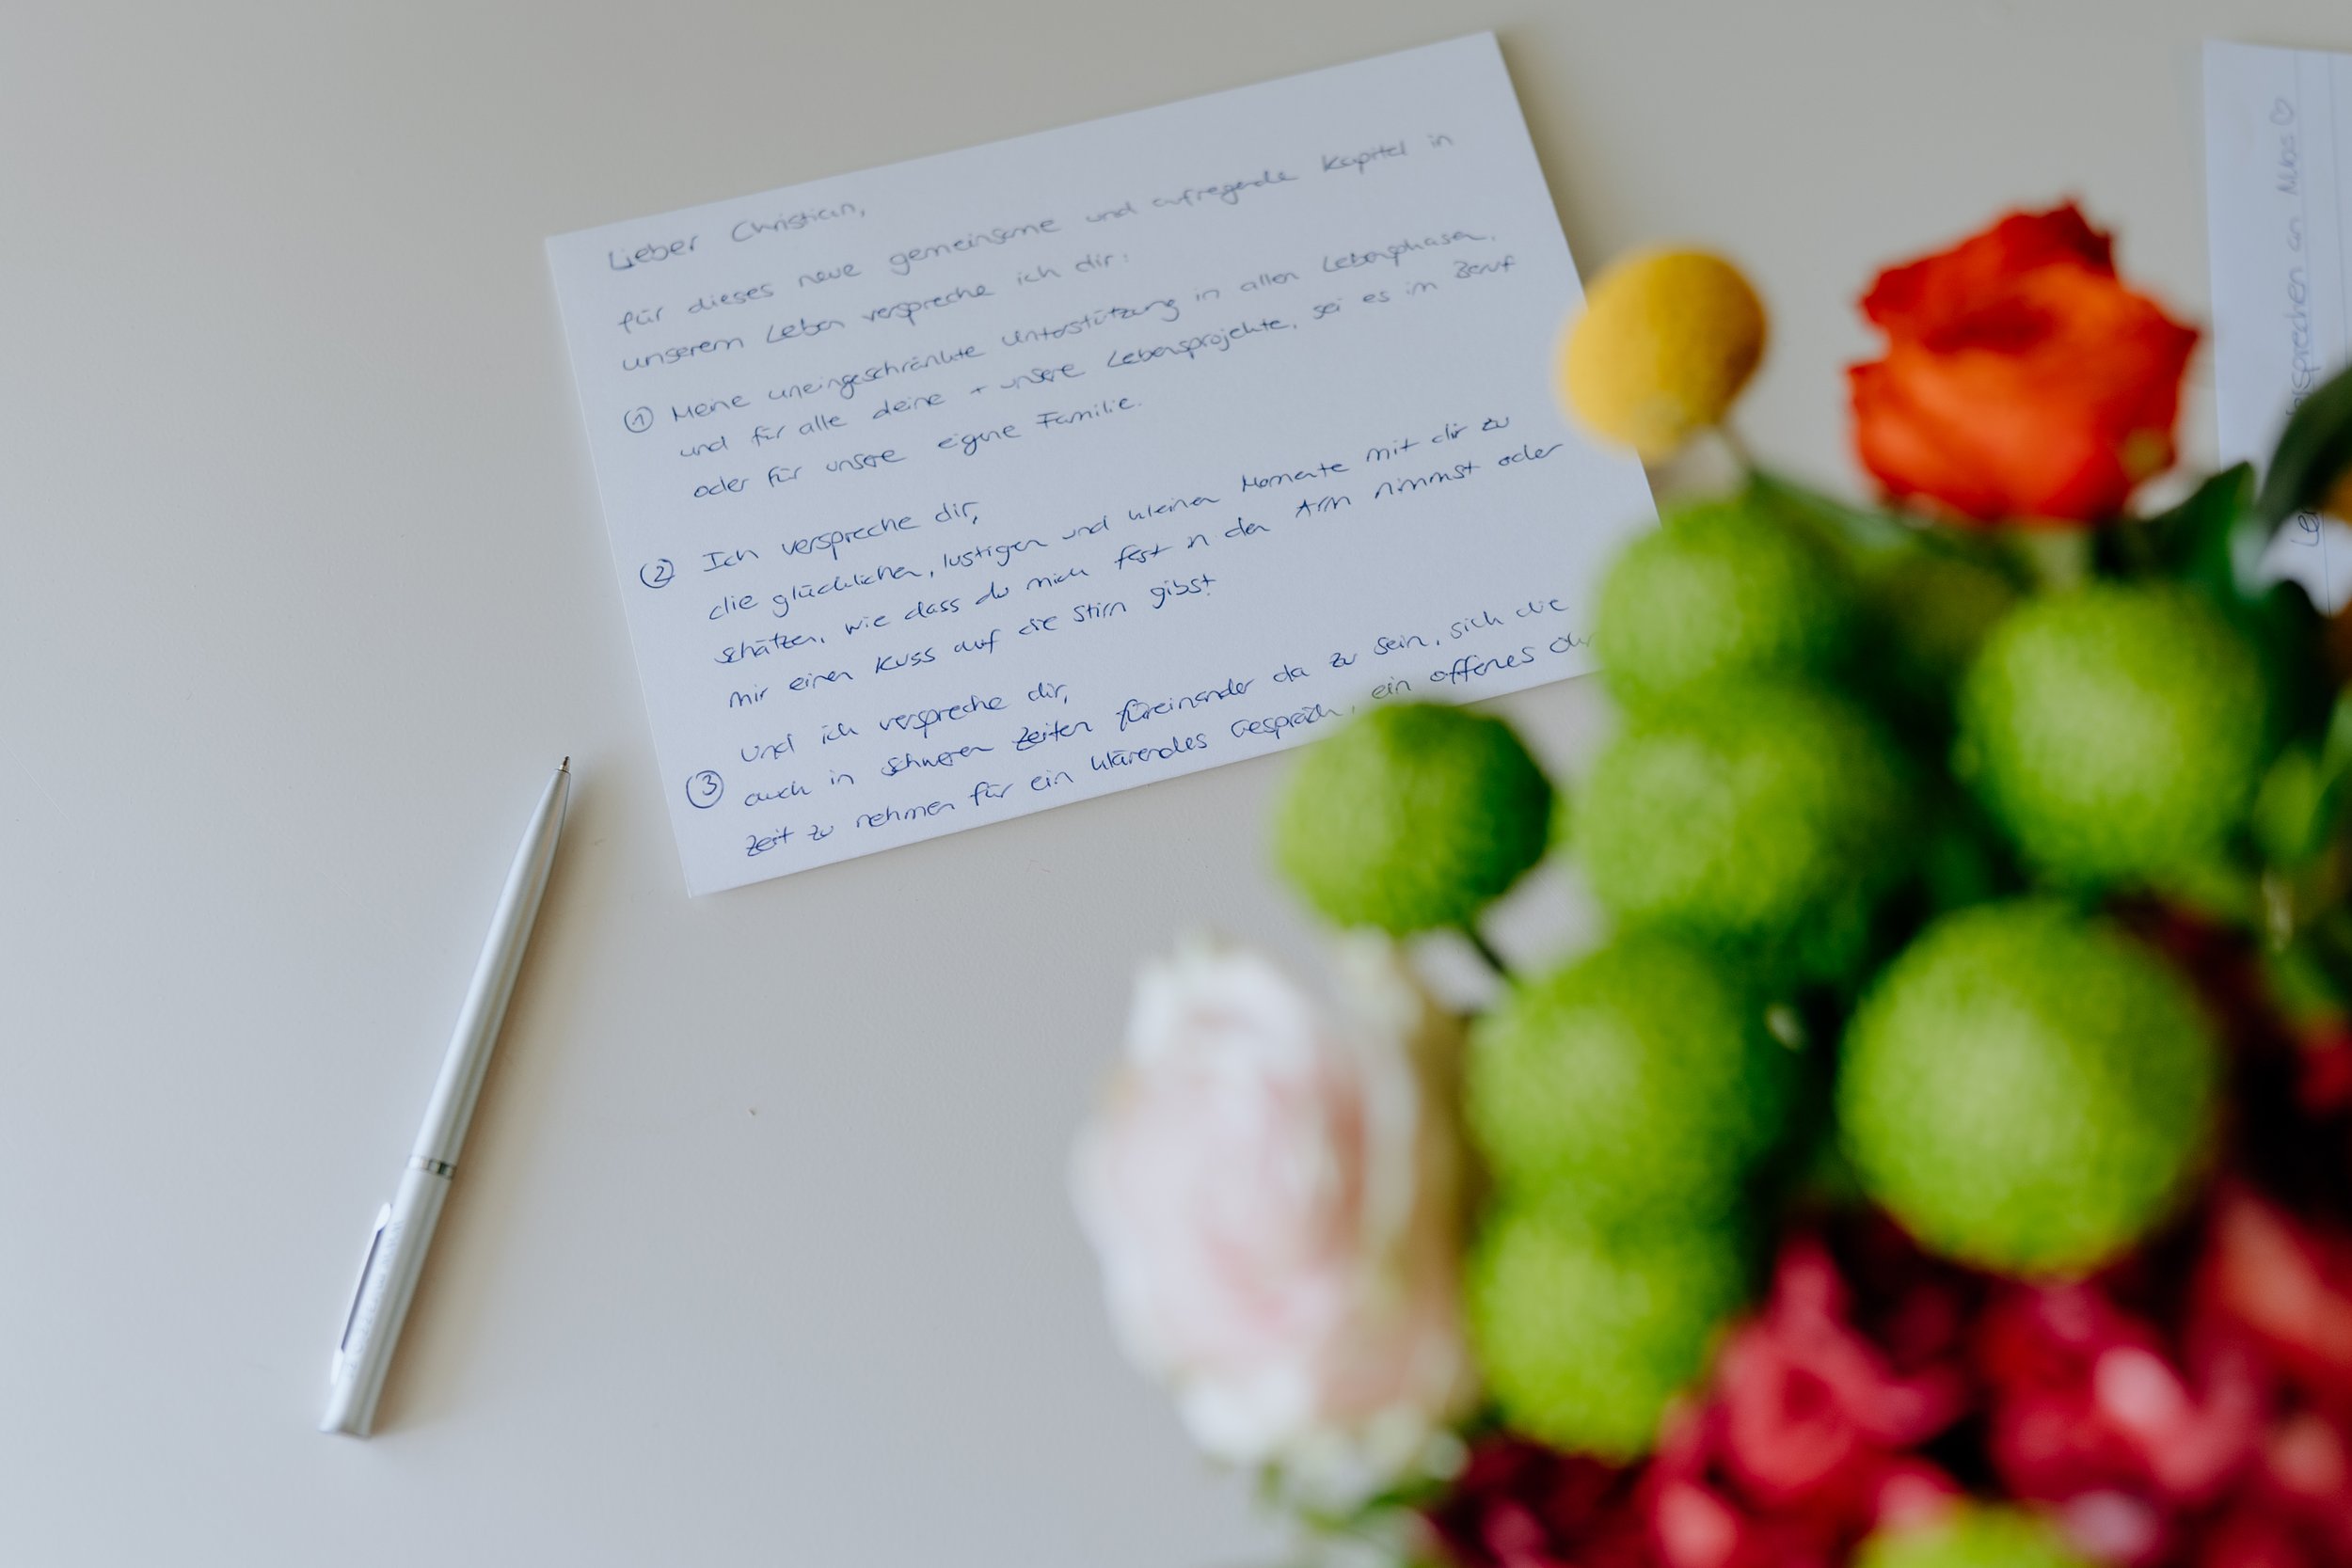 Lieber Christian,
für dieses neue gemeinsame und aufregende Kapitel in
unserem Leben verspreche ich dir:
① Meine uneingeschränkte Unterstützung in allen Lebensphasen,
und für alle deine + unsere Lebensprojekte, sei es im Beruf
oder für unsere eigene Familie.
② Ich verspreche dir,
die glücklichen, lustigen und kleinen Momente mit dir zu
schätzen, wie dass du mich fest in den Arm nimmst oder
mir einen Kuss auf die Stirn gibst
③ Und ich verspreche dir,
auch in schweren Zeiten füreinander da zu sein, sich die
Zeit zu nehmen für ein klärendes Gespräch, ein offenes
an